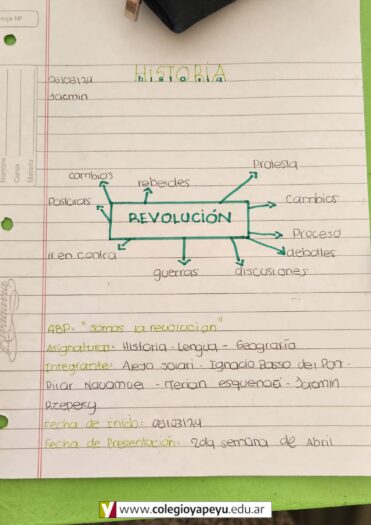 Hoja Nº
HISTORIA
historia
05/03/24
Jazmin
Protesta
cambios
rebeldes
Posturas
Cambios
REVOLUCIÓN
Proceso
ir en contra
debates
guerras
discusiones
ABP: "Somos la revolucion"
Asignaturas: Historia - Lengua - Geografía
Integrantes: Alejo Solari - Ignacio Basso del Pont -
Pilar - - Jazmin
Fecha de inicio: 05/03/24
Fecha de Presentación: 2da semana de Abril
Nombre
Curso
Materia
www.colegioyapeyu.edu.ar